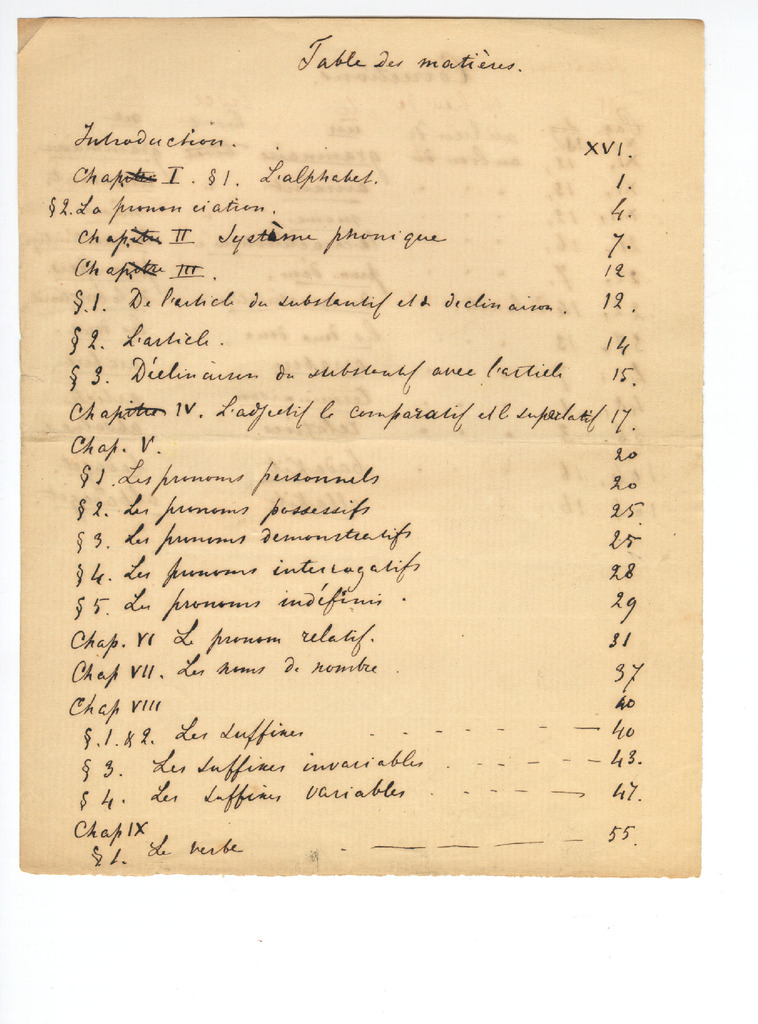 Table des matières.
Introduction. XVI.
Chapitre I. §1. L'alphabet. 1.
§2. La prononciation. 4.
Chapitre II Système phonique 7.
Chapitre III. 12
§.1. De l'article du substantif et déclinaison. 12.
§ 2. L'article. 14
§ 3. Déclinaison du substantif avec l'article 15.
Chapitre IV. L'adjectif le comparatif et le superlatif 17.
Chap. V. 20
§1. Les pronoms personnels 20
§ 2. Les pronoms possessifs 25
§ 3. Les pronoms demonstratifs 25
§ 4. Les pronoms interrogatifs 28
§ 5. Les pronoms indéfinis. 29
Chap. VI Le pronom relatif. 31
Chap VII. Les noms de nombre. 37
Chap VIII 40
§.1.&2. Les suffixes - - - - - 40
§ 3. Les suffixes invariables. - - - - 43.
§ 4. Les suffixes variables. - - - - 47.
Chap IX 55.
§1. Le verbe - - - -